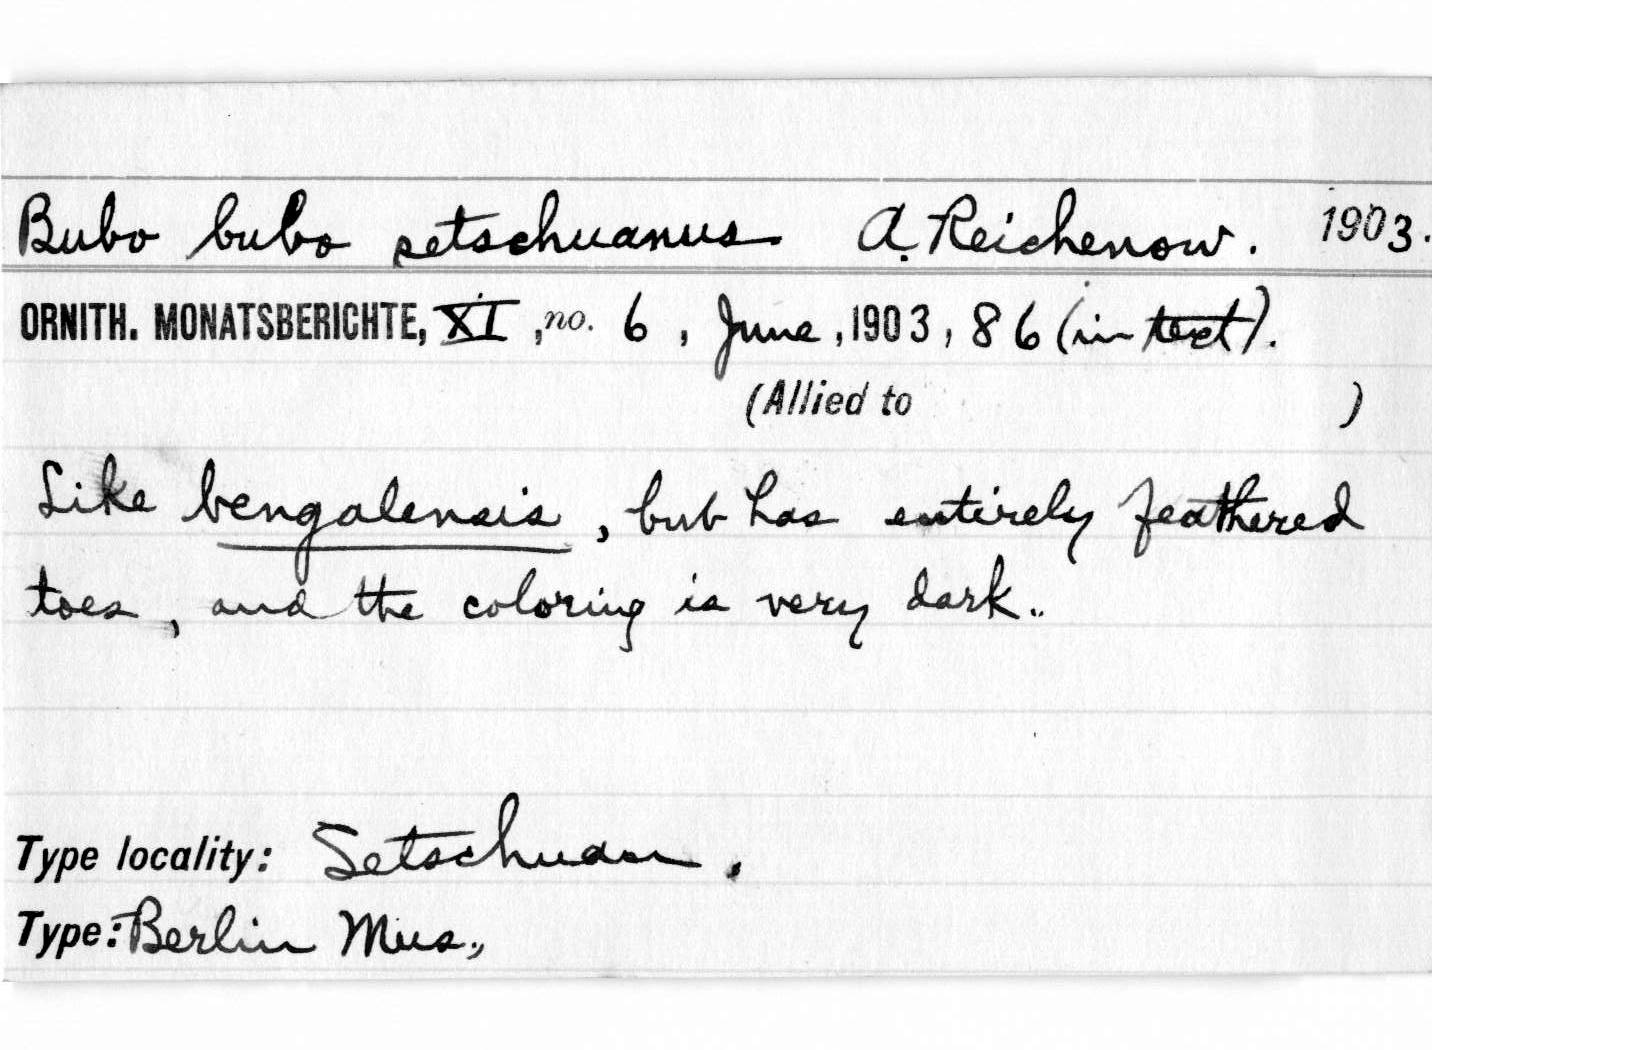 Bubo bubo setschuanus A. Reichenow. 1903.
ORNITH. MONATSBERICHTE, XI, no. 6, June, 1903, 86 (in text).
(Allied to )
Like bengalensis, but has entirely feathered
toes, and the coloring is very dark.
Type locality: Setschuan.
Type: Berlin Mus.,